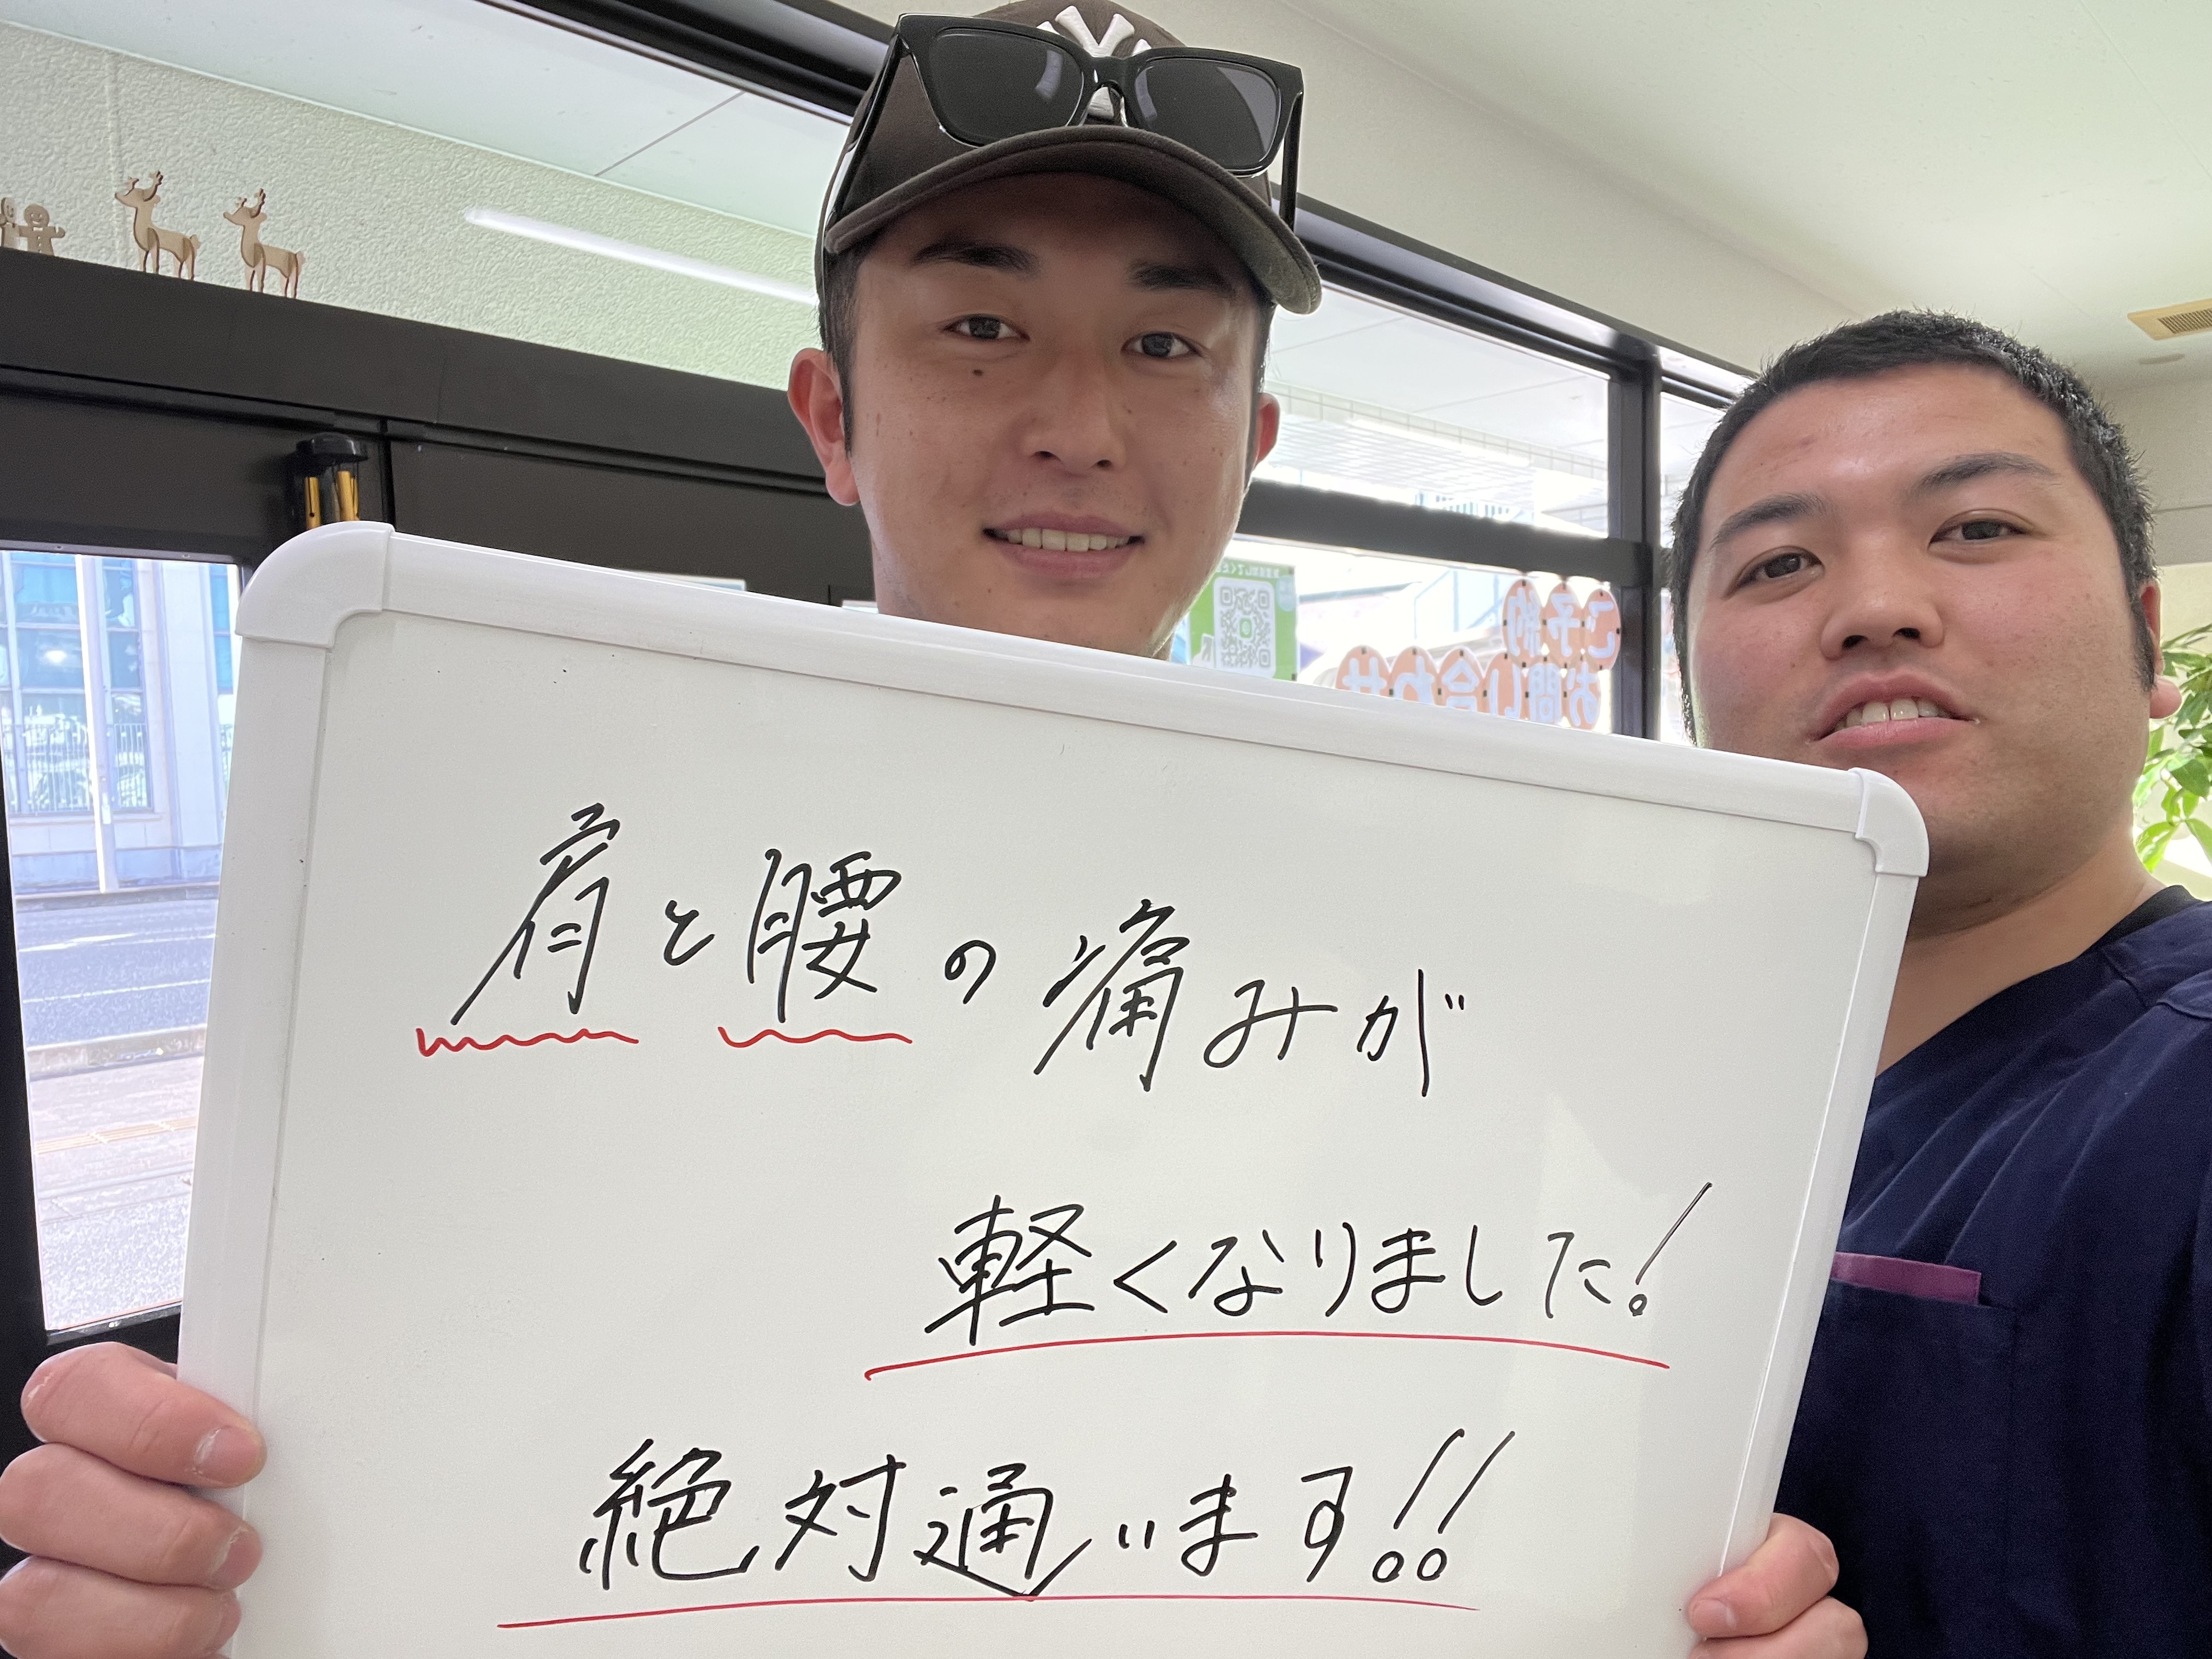 肩と腰の痛みが
軽くなりました!
絶対通います!!
ご予約
お問い合わせ